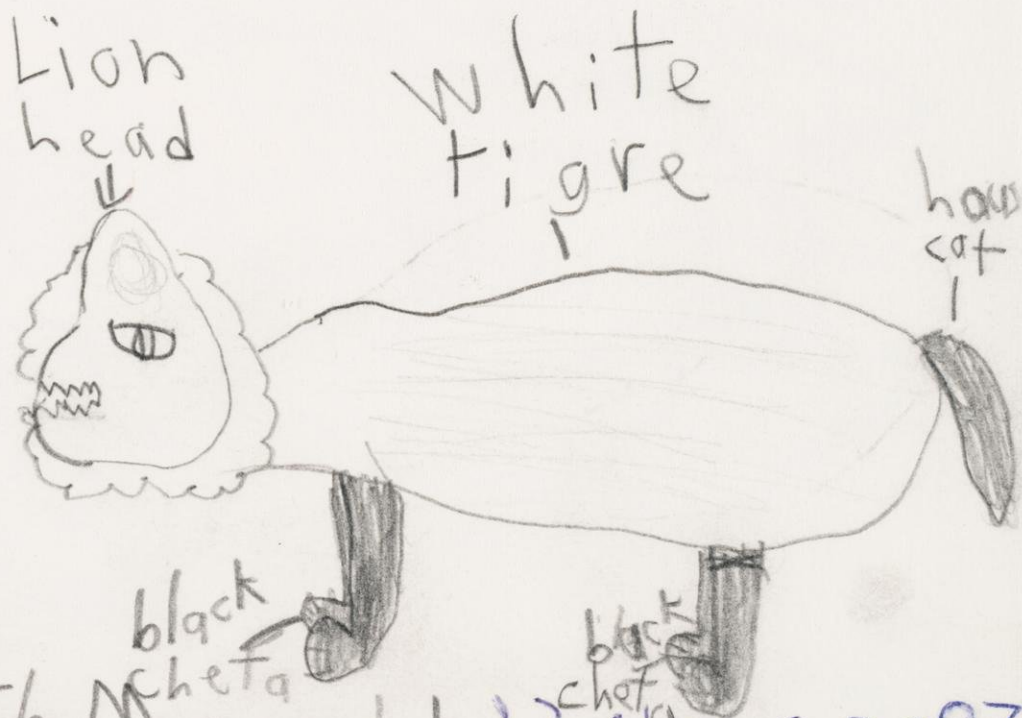 Lion
head
white
tigre
cat
black
cheta
black